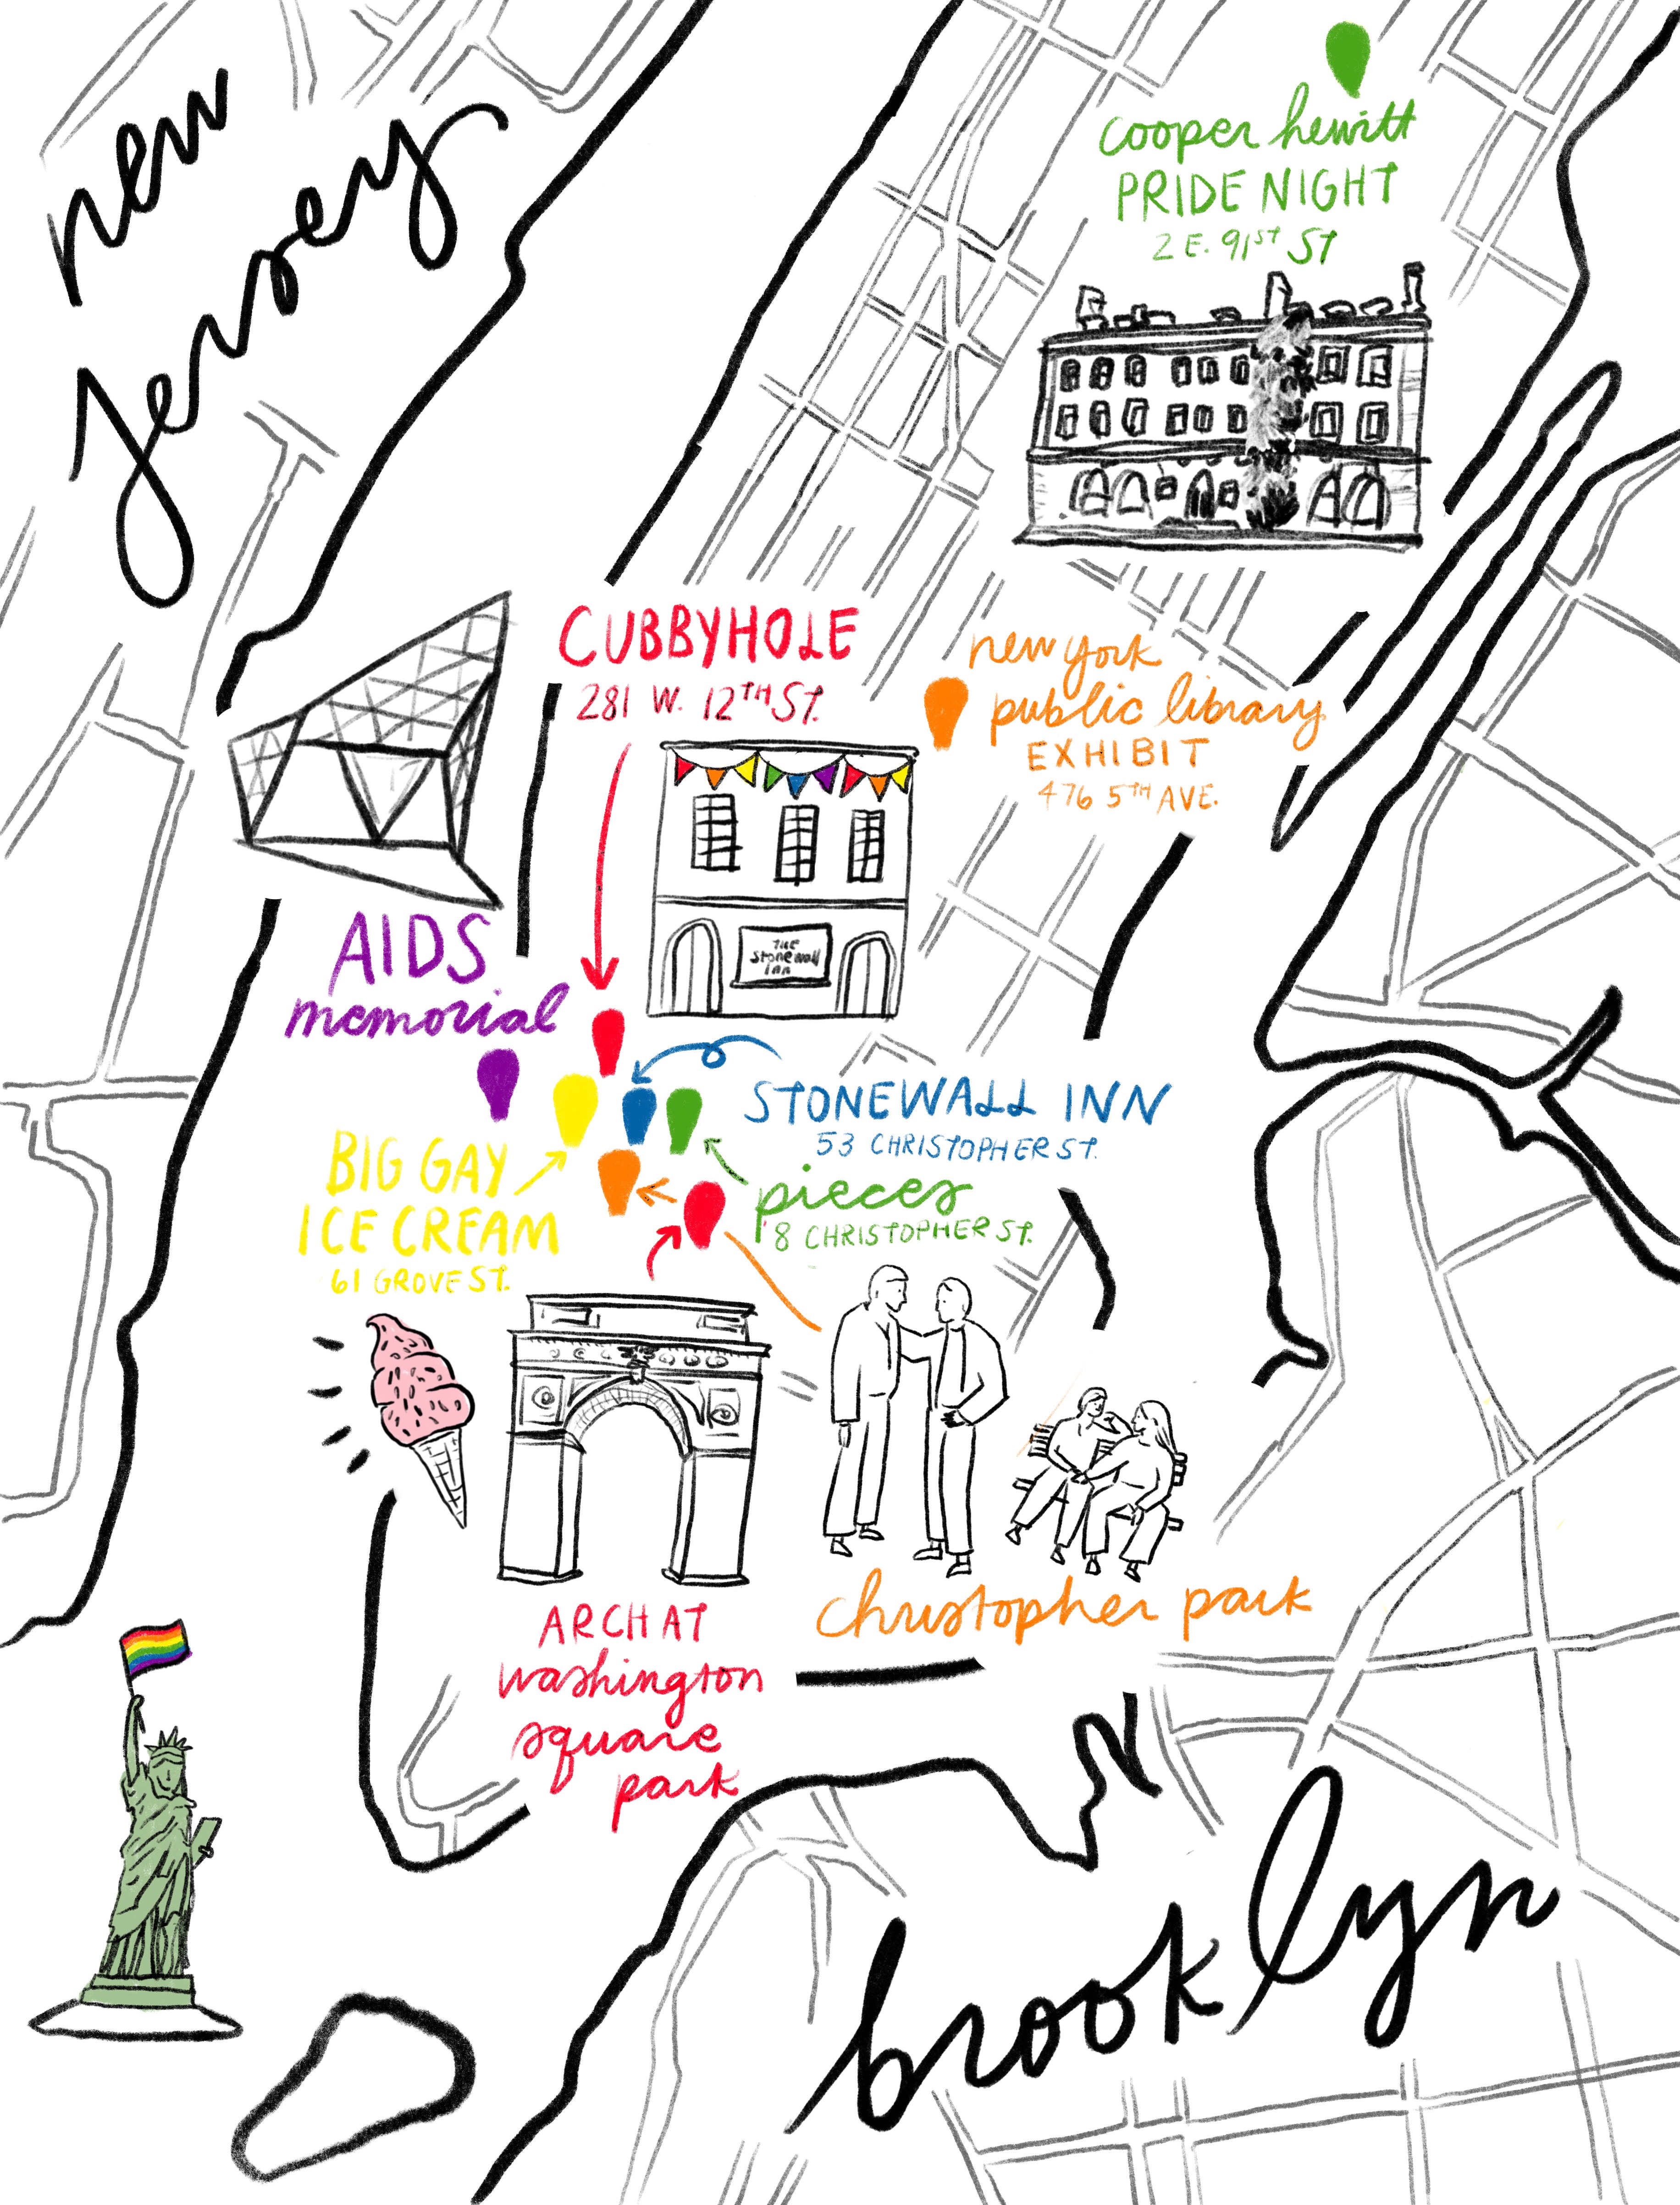 new
Jersey
cooper hewitt
PRIDE NIGHT
2 E. 91ST ST
CUBBYHOLE
281 W. 12TH ST.
new york
public library
EXHIBIT
476 5TH AVE.
THE
Stonewall
Inn
AIDS
memorial
STONEWALL INN
53 CHRISTOPHER ST.
BIG GAY
ICE CREAM
61 GROVE ST.
pieces
8 CHRISTOPHER ST.
ARCH AT
washington
square
park
christopher park
brooklyn